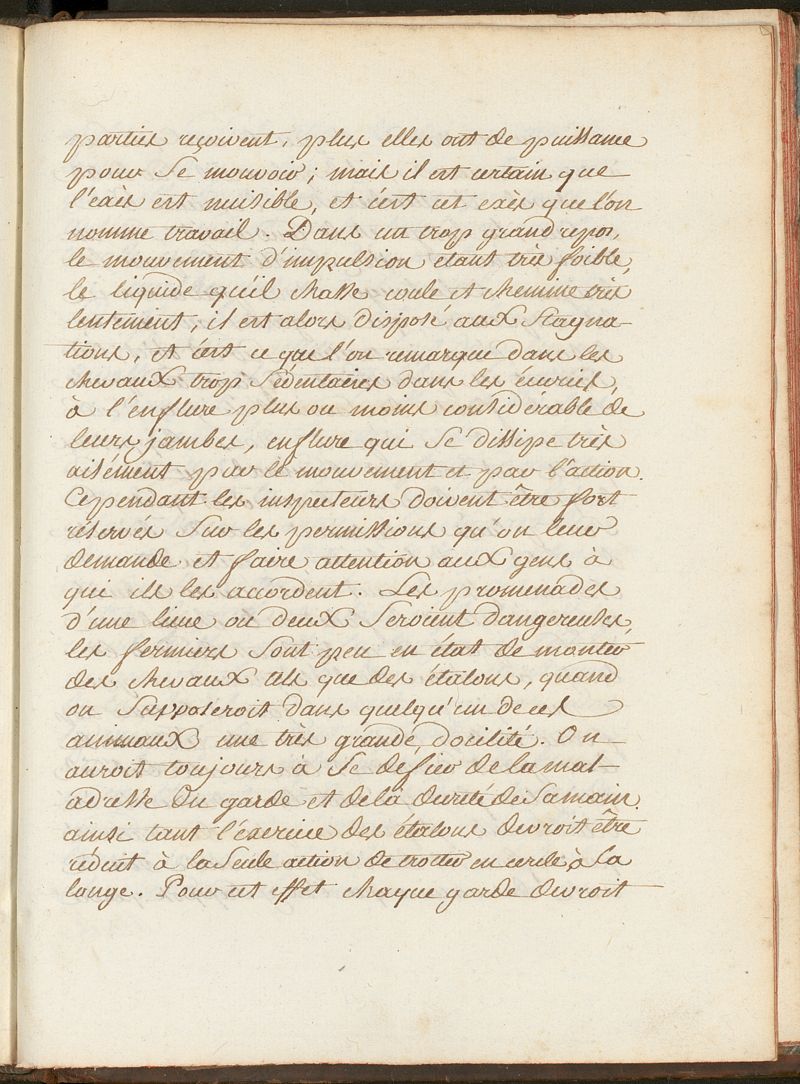 parties reçoivent, plus elles ont de puissance
pour se mouvoir; mais il est certain que
l'exès est nuisible, et c'est cet exès que l'on
nomme travail. Dans un trop grand repos,
le mouvement d'impulsion étant très foible,
le liquide qu'il chasse coule et chemine très
lentement, il est alors disposé aux stagna-
tions, et c'est ce que l'on remarque dans les
chevaux trop sédentaires dans les écuries,
à l'enflure plus ou moins considérable de
leurs jambes, enflure qui se dissipe très
aisément par le mouvement et par l'action.
Cependant les inspecteurs doivent être fort
réservés sur les permissions qu'on leur
demande et faire attention aux gens à
qui ils les accordent. Les promenades
d'une lieue ou deux seroient dangereuses,
les fermiers sont peu en état de monter
des chevaux tels que des étalons, quand
on supposeroit dans quelqu'un de ces
animaux une très grande docilité. On
auroit toujours à se defier de la mal-
adresse du garde et de la dureté de sa main.
ainsi tant l'exercice des étalons devroit être
reduit à la seule action de trotter en cercle à la
longe. Pour cet effet chaque garde devroit